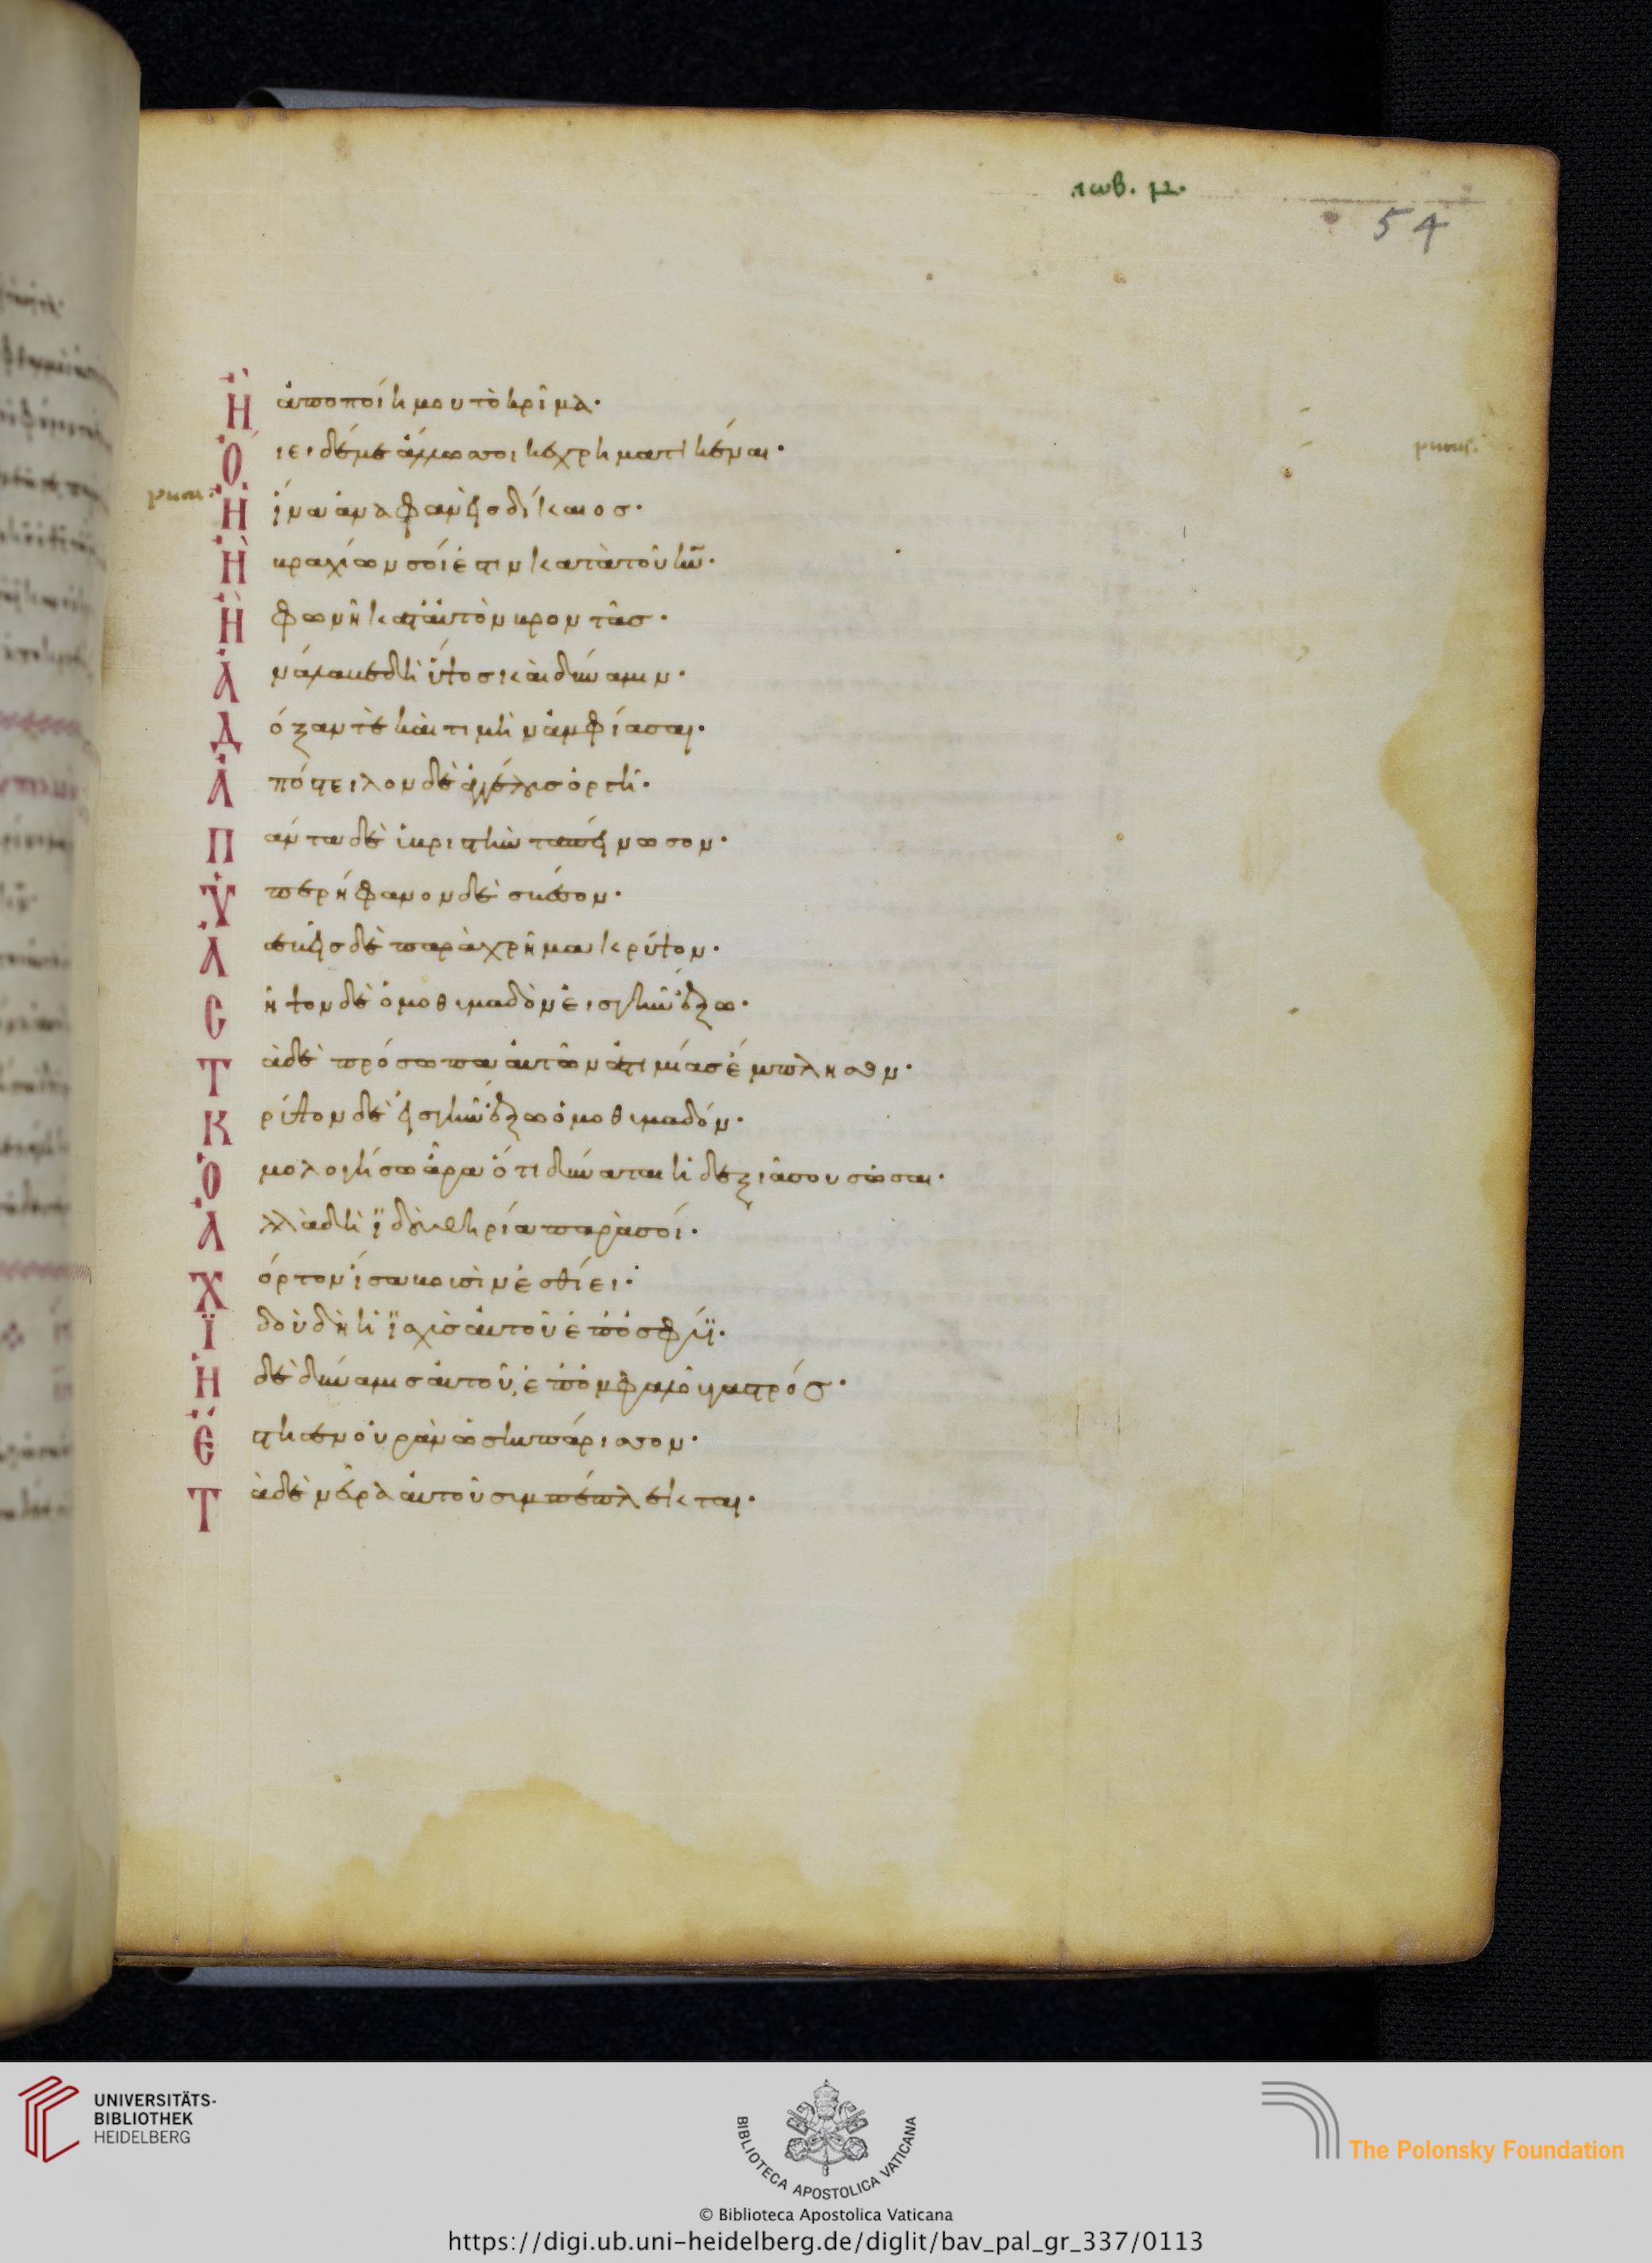 ιωβ. μ.
54
Ἢ ἀποποιῆ μου τὸ κρῖμα·
Ὄιει δέ με ἄλλως σοι κεχρηματικέναι·
Ἢ ἵνα ἀναφανῇς δίκαιος·
Ἢ βραχίων σοί ἐστιν κατὰ τοῦ κ̅υ̅·
Ἢ φωνῆ κατ' αὐτὸν βροντᾶς·
Ἀνάλαβε δὴ ὕψος καὶ δύναμιν·
Δόξαν τὲ καὶ τιμὴν ἀμφίασαι·
Ἀπόστειλον δὲ ἀγγέλους ὀργῆ·
Πάντα δὲ ὑβριστὴν ταπείνωσον·
Ὑπερήφανον δὲ σβέσον·
Λ
ῆψον δὲ ὁμοθυμαδὸν εἰς γῆν ἔξω·
Τὰ δὲ πρόσωπα αὐτῶν ἀτιμίας ἔμπλησον·
Κρύψον δὲ εἰς γῆν ἔξω ὁμοθυμαδόν·
Ὁμολογήσω ἄρα ὅτι δύναται ἡ δεξιά σου σῶσαι·
Ἀλλὰ δὴ ἰδοὺ θηρία παρὰ σοί·
Χόρτον ἴσα βουσὶν ἐσθίει·
Ἰδοὺ δὴ ἡ ἰσχὺς αὐτοῦ ἐπ' ὀσφύϊ·
Ἡ δὲ δύναμις αὐτοῦ, ἐπ' ὀμφαλοῦ γαστρός·
Ἔστησεν οὐρὰν ὡς κυπάρισσον·
Τὰ δὲ νεῦρα αὐτοῦ συμπέπλεκται·
UNIVERSITÄTS-
BIBLIOTHEK
HEIDELBERG
BIBLIOTECA APOSTOLICA VATICANA
The Polonsky Foundation
© Biblioteca Apostolica Vaticana
https://digi.ub.uni-heidelberg.de/diglit/bav_pal_gr_337/0113